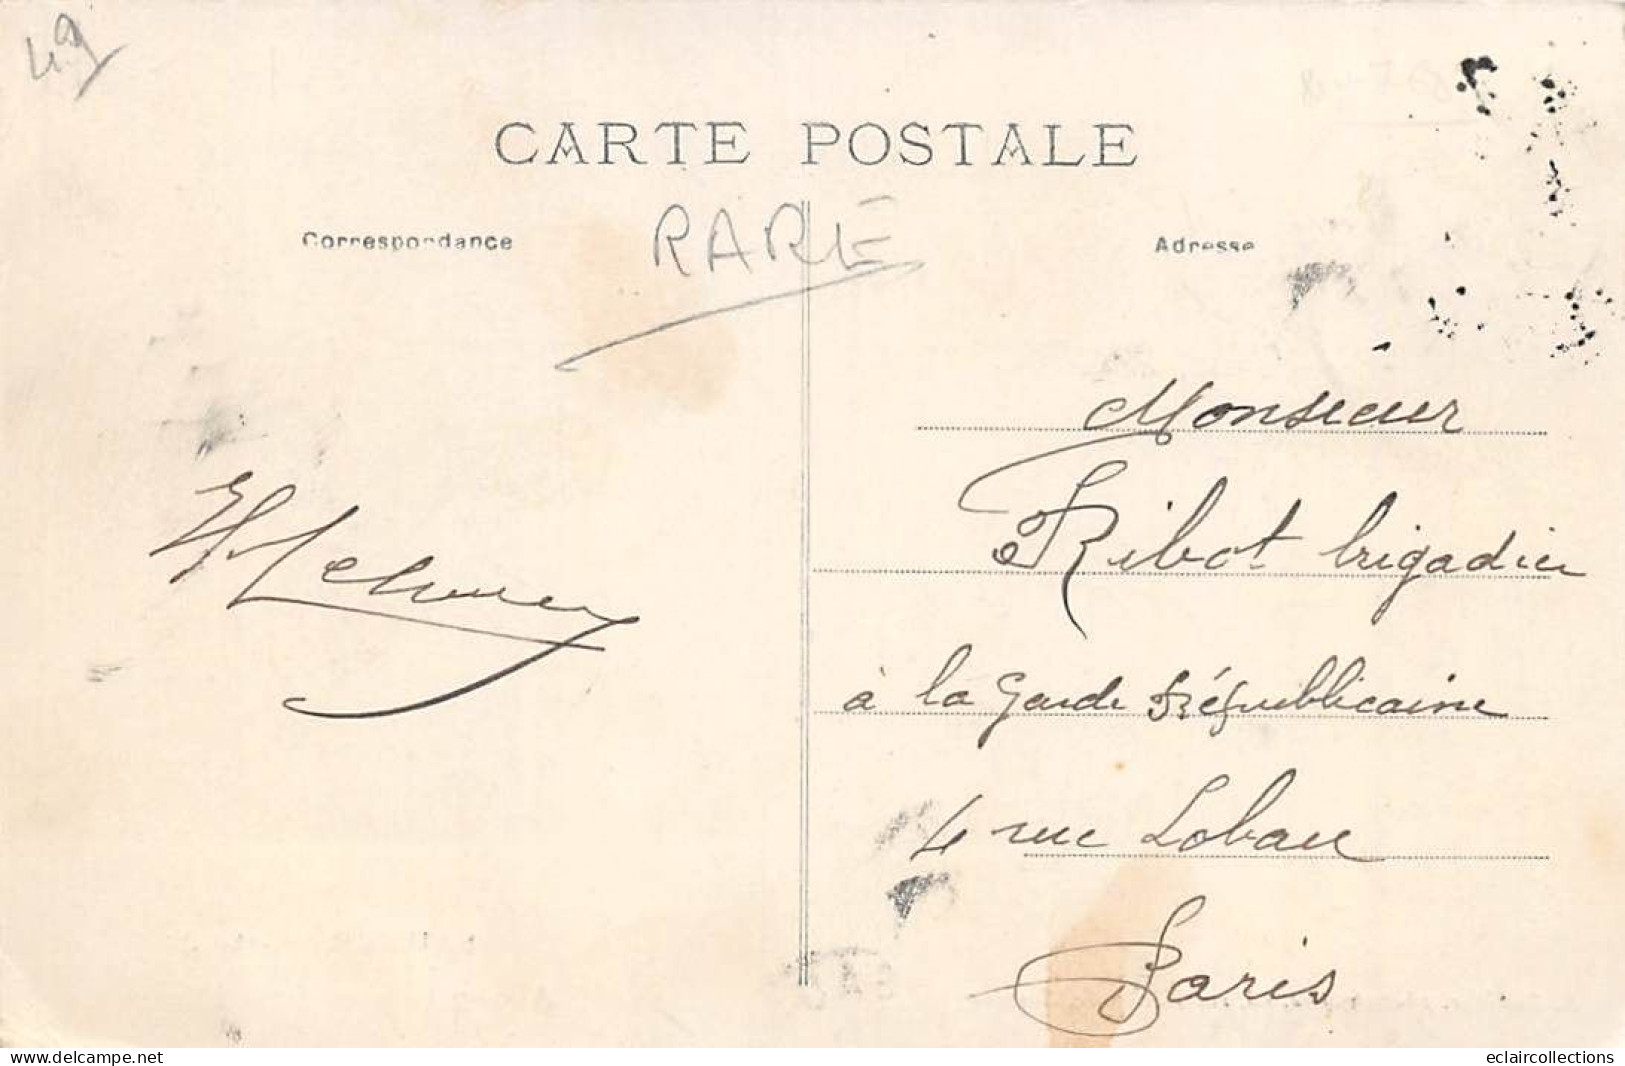 49
CARTE POSTALE
RARE
Correspondance
Adresse
Monsieur
Ribot brigadier
à la Garde Républicaine
4 rue Lobau
Paris
www.delcampe.net
eclaircollections